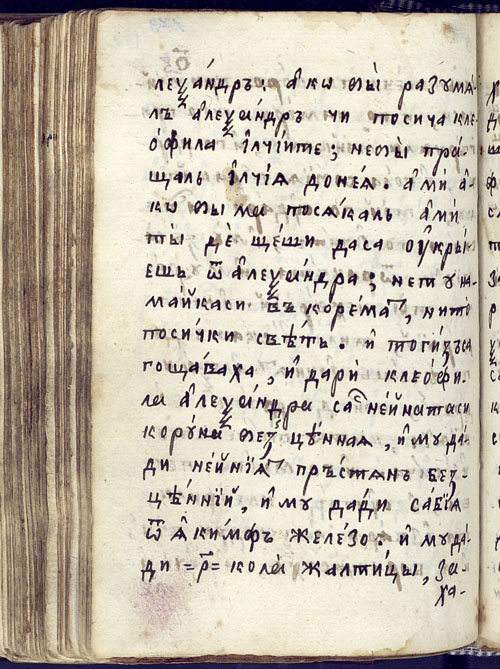 леѯа́ндръ. а́ко бы̀ разумѧ̀
лъ а҆леѯа́ндръ чи посича кле
о́фила і҆лчі́ите; не бы̀ пра́-
щаль і҆лчі́ѧ до неѧ. а҆ми а҆-
ко бы ма посѧ́каль а҆ми
ты̀ дѐ ще́ши да са оу҆кры́
ешь ѿ а҆леѯа́ндра; нет у на
ма́йка си въ коре́ма, ни то
по си́чки свѣ́тъ. и҆ тогизъ са
гоща́ваха, и҆ дари̑ клео́фи
ла а҆леѯа́ндра са не́йната си
кору́на без цѣ́нная, и҆ му да́
ди не́йнїѧ пръ́стянъ без-
цѣ́ннїй, и҆ му да́ди са́бїѧ
ѿ ѧ҆ки́мфъ желе́зо. и҆ му да́
ди =р҃= кола̀ жалти́цы, за-
ха-